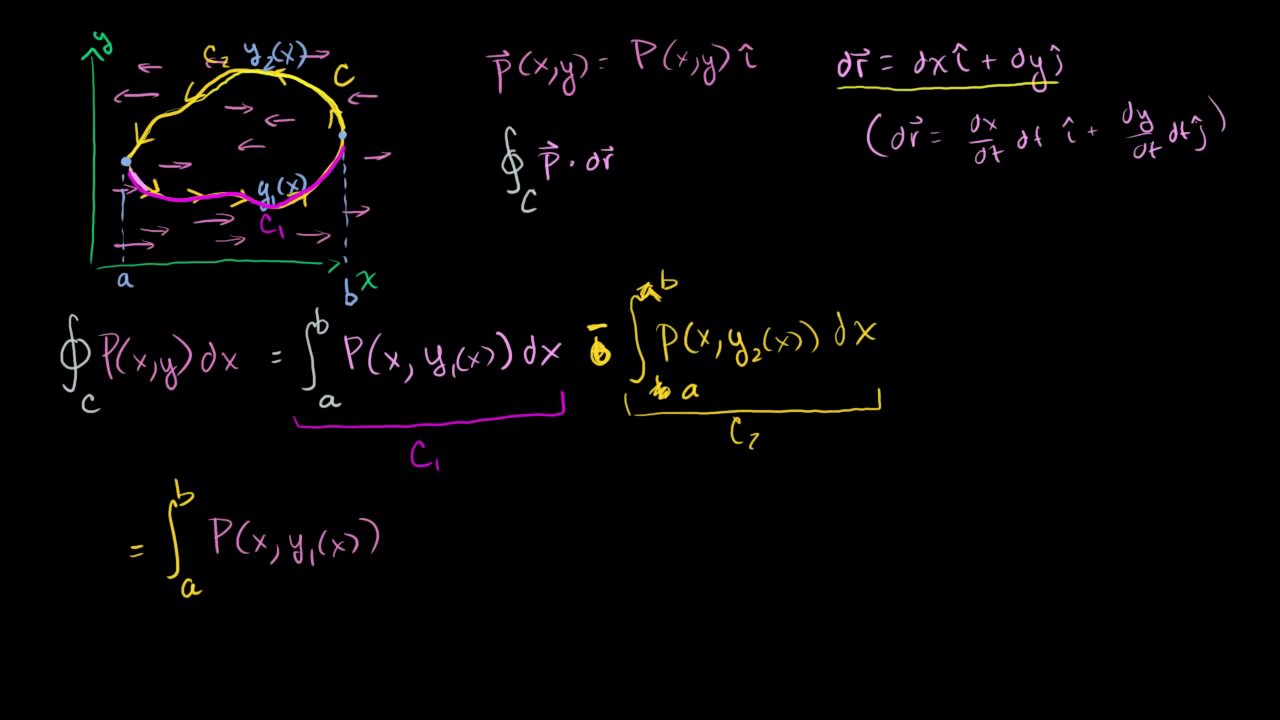 y
C₂ y₂(x)
C
y₁(x)
C₁
a
b
x
p⃗(x,y) = P(x,y) î
dr⃗ = dx î + dy ĵ
(dr⃗ = dx/dt dt î + dy/dt dt ĵ)
∮_C p⃗ · dr⃗
∮_C P(x,y) dx = ∫_a^b P(x, y₁(x)) dx − ∫_a^b P(x, y₂(x)) dx
C₁
C₂
= ∫_a^b P(x, y₁(x))